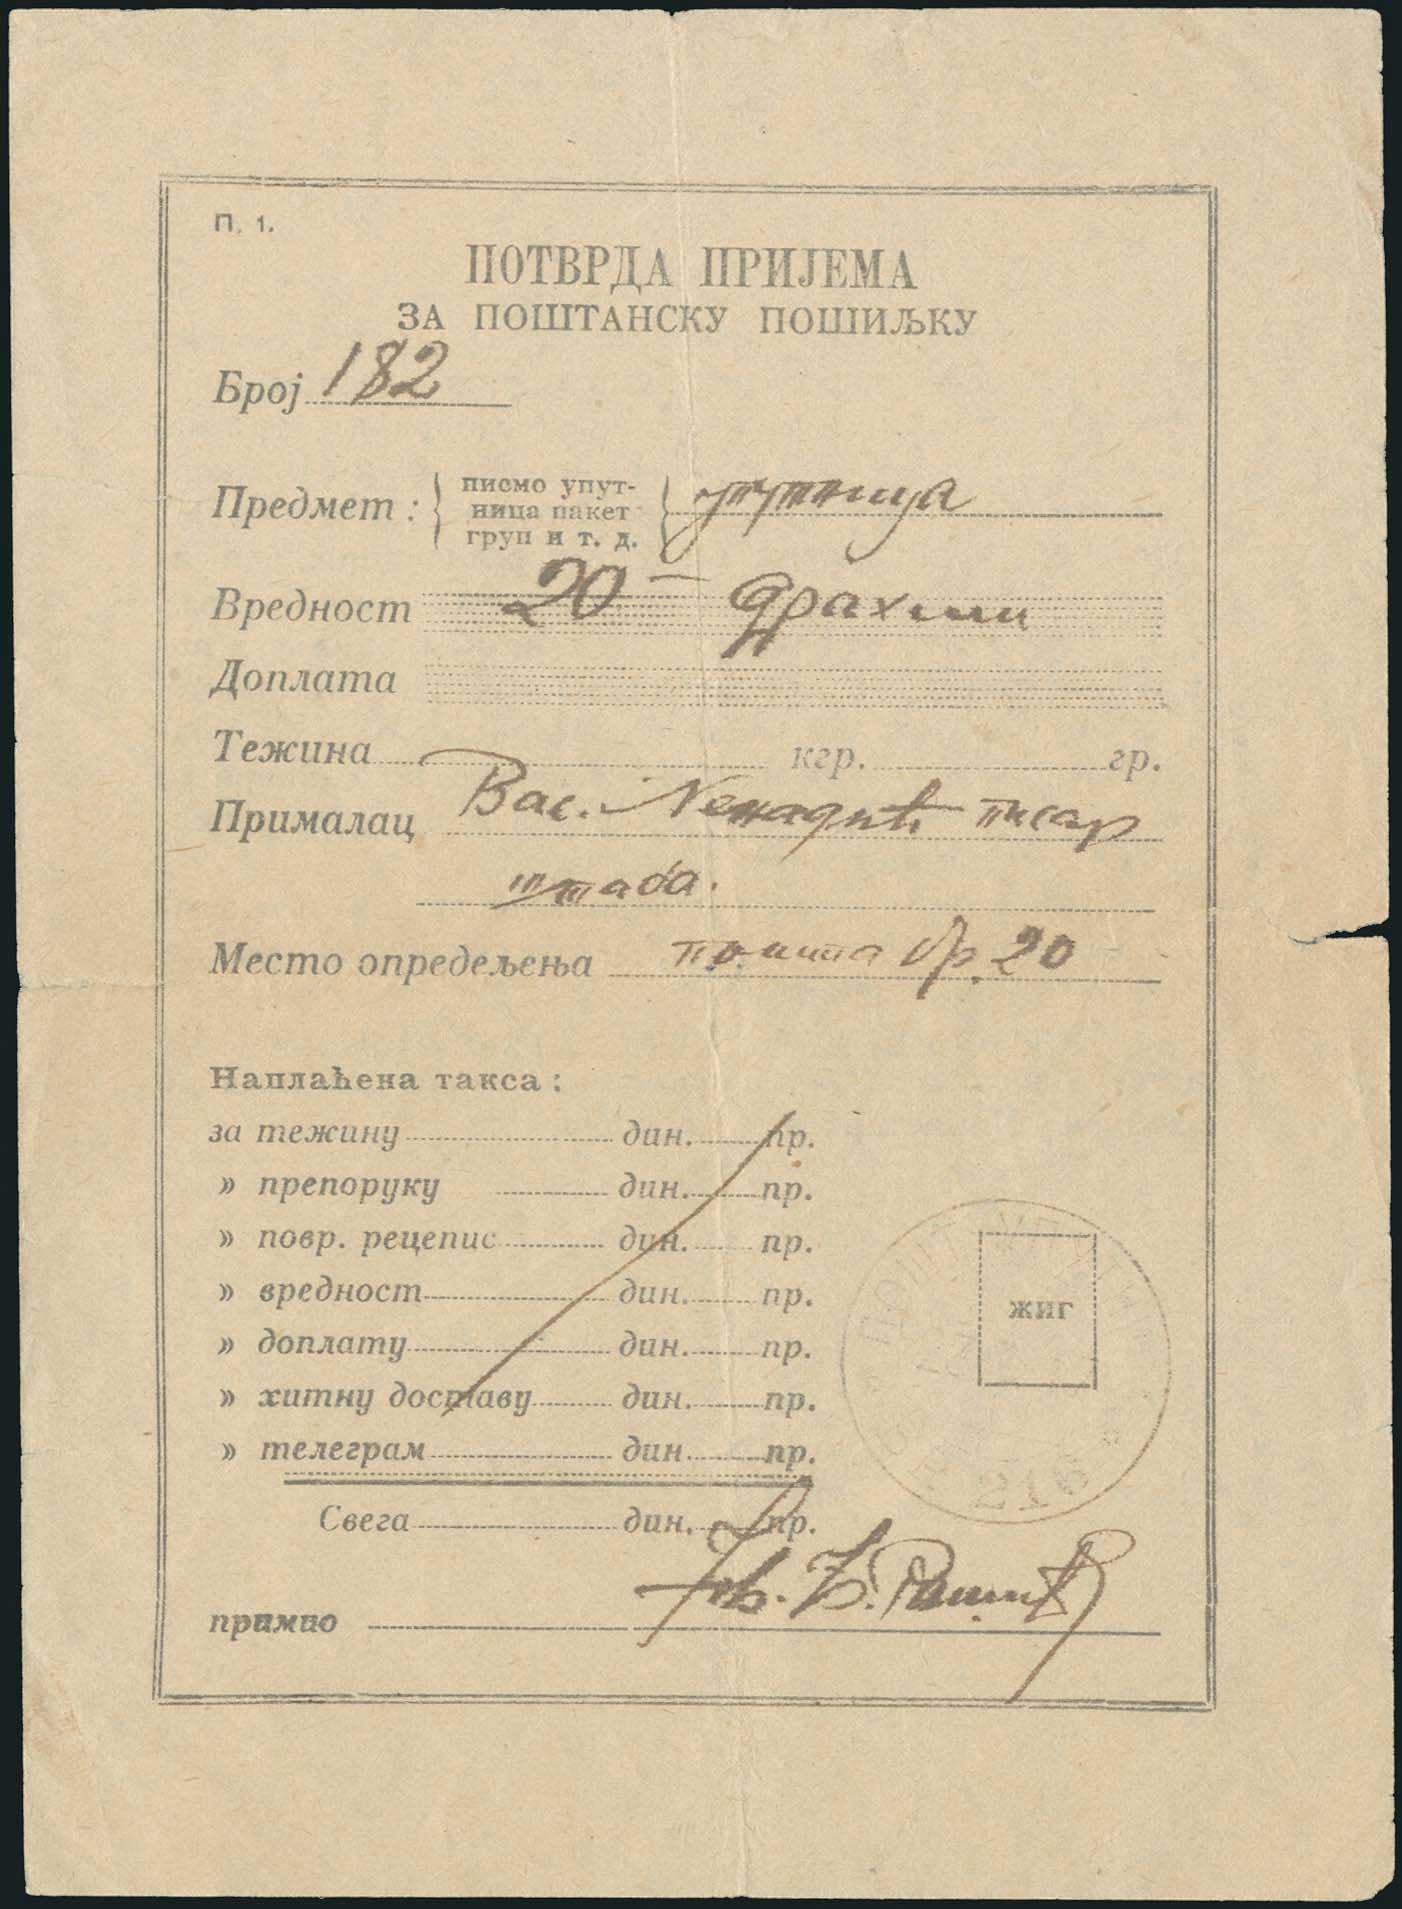 П. 1.
ПОТВРДА ПРИЈЕМА
ЗА ПОШТАНСКУ ПОШИЉКУ
Број 182
Предмет : { писмо упут-
ница пакет
груп и т. д. } упутница
Вредност 20 — драхми
Доплата
Тежина кгр. гр.
Прималац Вас. Ненадић писар
штаба.
Место опредељења пошта бр. 20
Наплаћена такса :
за тежину дин. пр.
» препоруку дин. пр.
» повр. рецепис дин. пр.
» вредност дин. пр.
» доплату дин. пр.
» хитну доставу дин. пр.
» телеграм дин. пр.
Свега дин. пр.
ЖИГ
примио